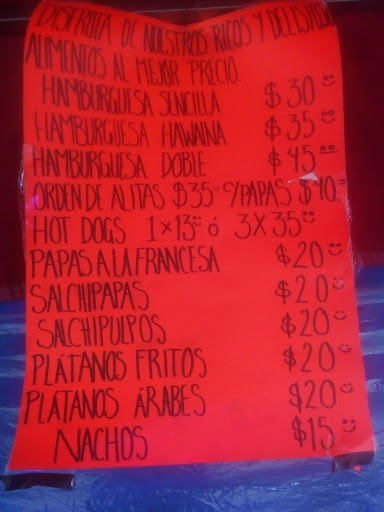 DISFRUTA DE NUESTROS RICOS Y DELISIOSOS
ALIMENTOS AL MEJOR PRECIO.
HAMBURGUESA SENCILLA $30
HAMBURGUESA HAWAINA $35
HAMBURGUESA DOBLE $45
ORDEN DE ALITAS $35= C/PAPAS $40.=
HOT DOGS 1x13 ó 3X35
PAPAS A LA FRANCESA $20
SALCHIPAPAS $20
SALCHIPULPOS $20
PLÁTANOS FRITOS $20
PLÁTANOS ÁRABES $20
NACHOS $15